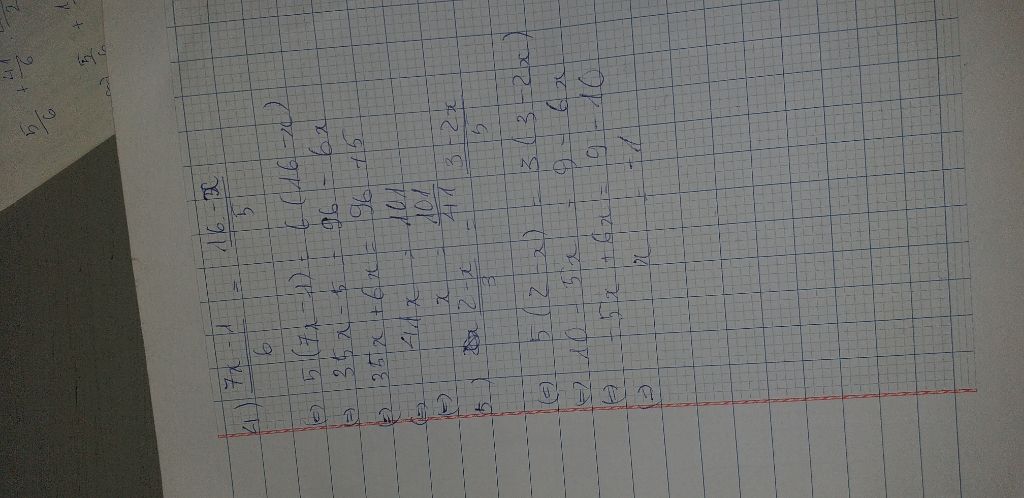 4) 7x - 1 / 6 = 16 - x / 5
(=) 5(7x - 1) = 6(16 - x)
(=) 35x - 5 = 96 - 6x
(=) 35x + 6x = 96 + 5
(=) 41x = 101
(=) x = 101 / 41
5) 2 - x / 3 = 3 - 2x / 5
(=) 5(2 - x) = 3(3 - 2x)
(=) 10 - 5x = 9 - 6x
(=) -5x + 6x = 9 - 10
(=) x = -1